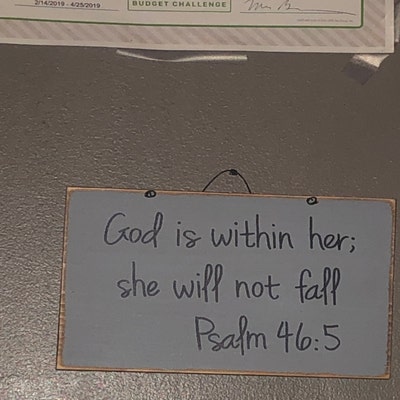 2/14/2019 - 4/25/2019
BUDGET CHALLENGE
God is within her;
she will not fall
Psalm 46:5